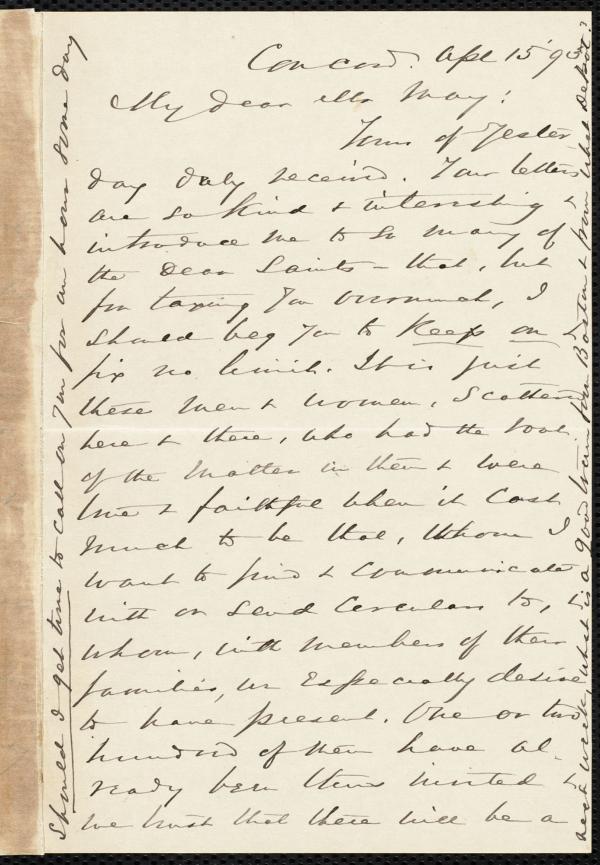 Concord. Apl 15 '93
My dear Mr May:
Yours of Yester
day duly received. Your letters
are so kind & interesting &
introduce me to so many of
the Dear Saints – that, but
for taxing you overmuch, I
should beg you to Keep on &
fix no limit. It is just
these men & women, scattered
here & there, who had the root
of the matter in them & were
true & faithful when it cost
much to be that, whom I
want to find & communicate
with or send Circulars to, &
whom, with members of their
families, we Especially desire
to have present. One or two
hundred of them have al-
ready been thus invited &
we trust that there will be a
Should I get time to call on you for an hour some day
next week, what is a good train from Boston & from what Depot?